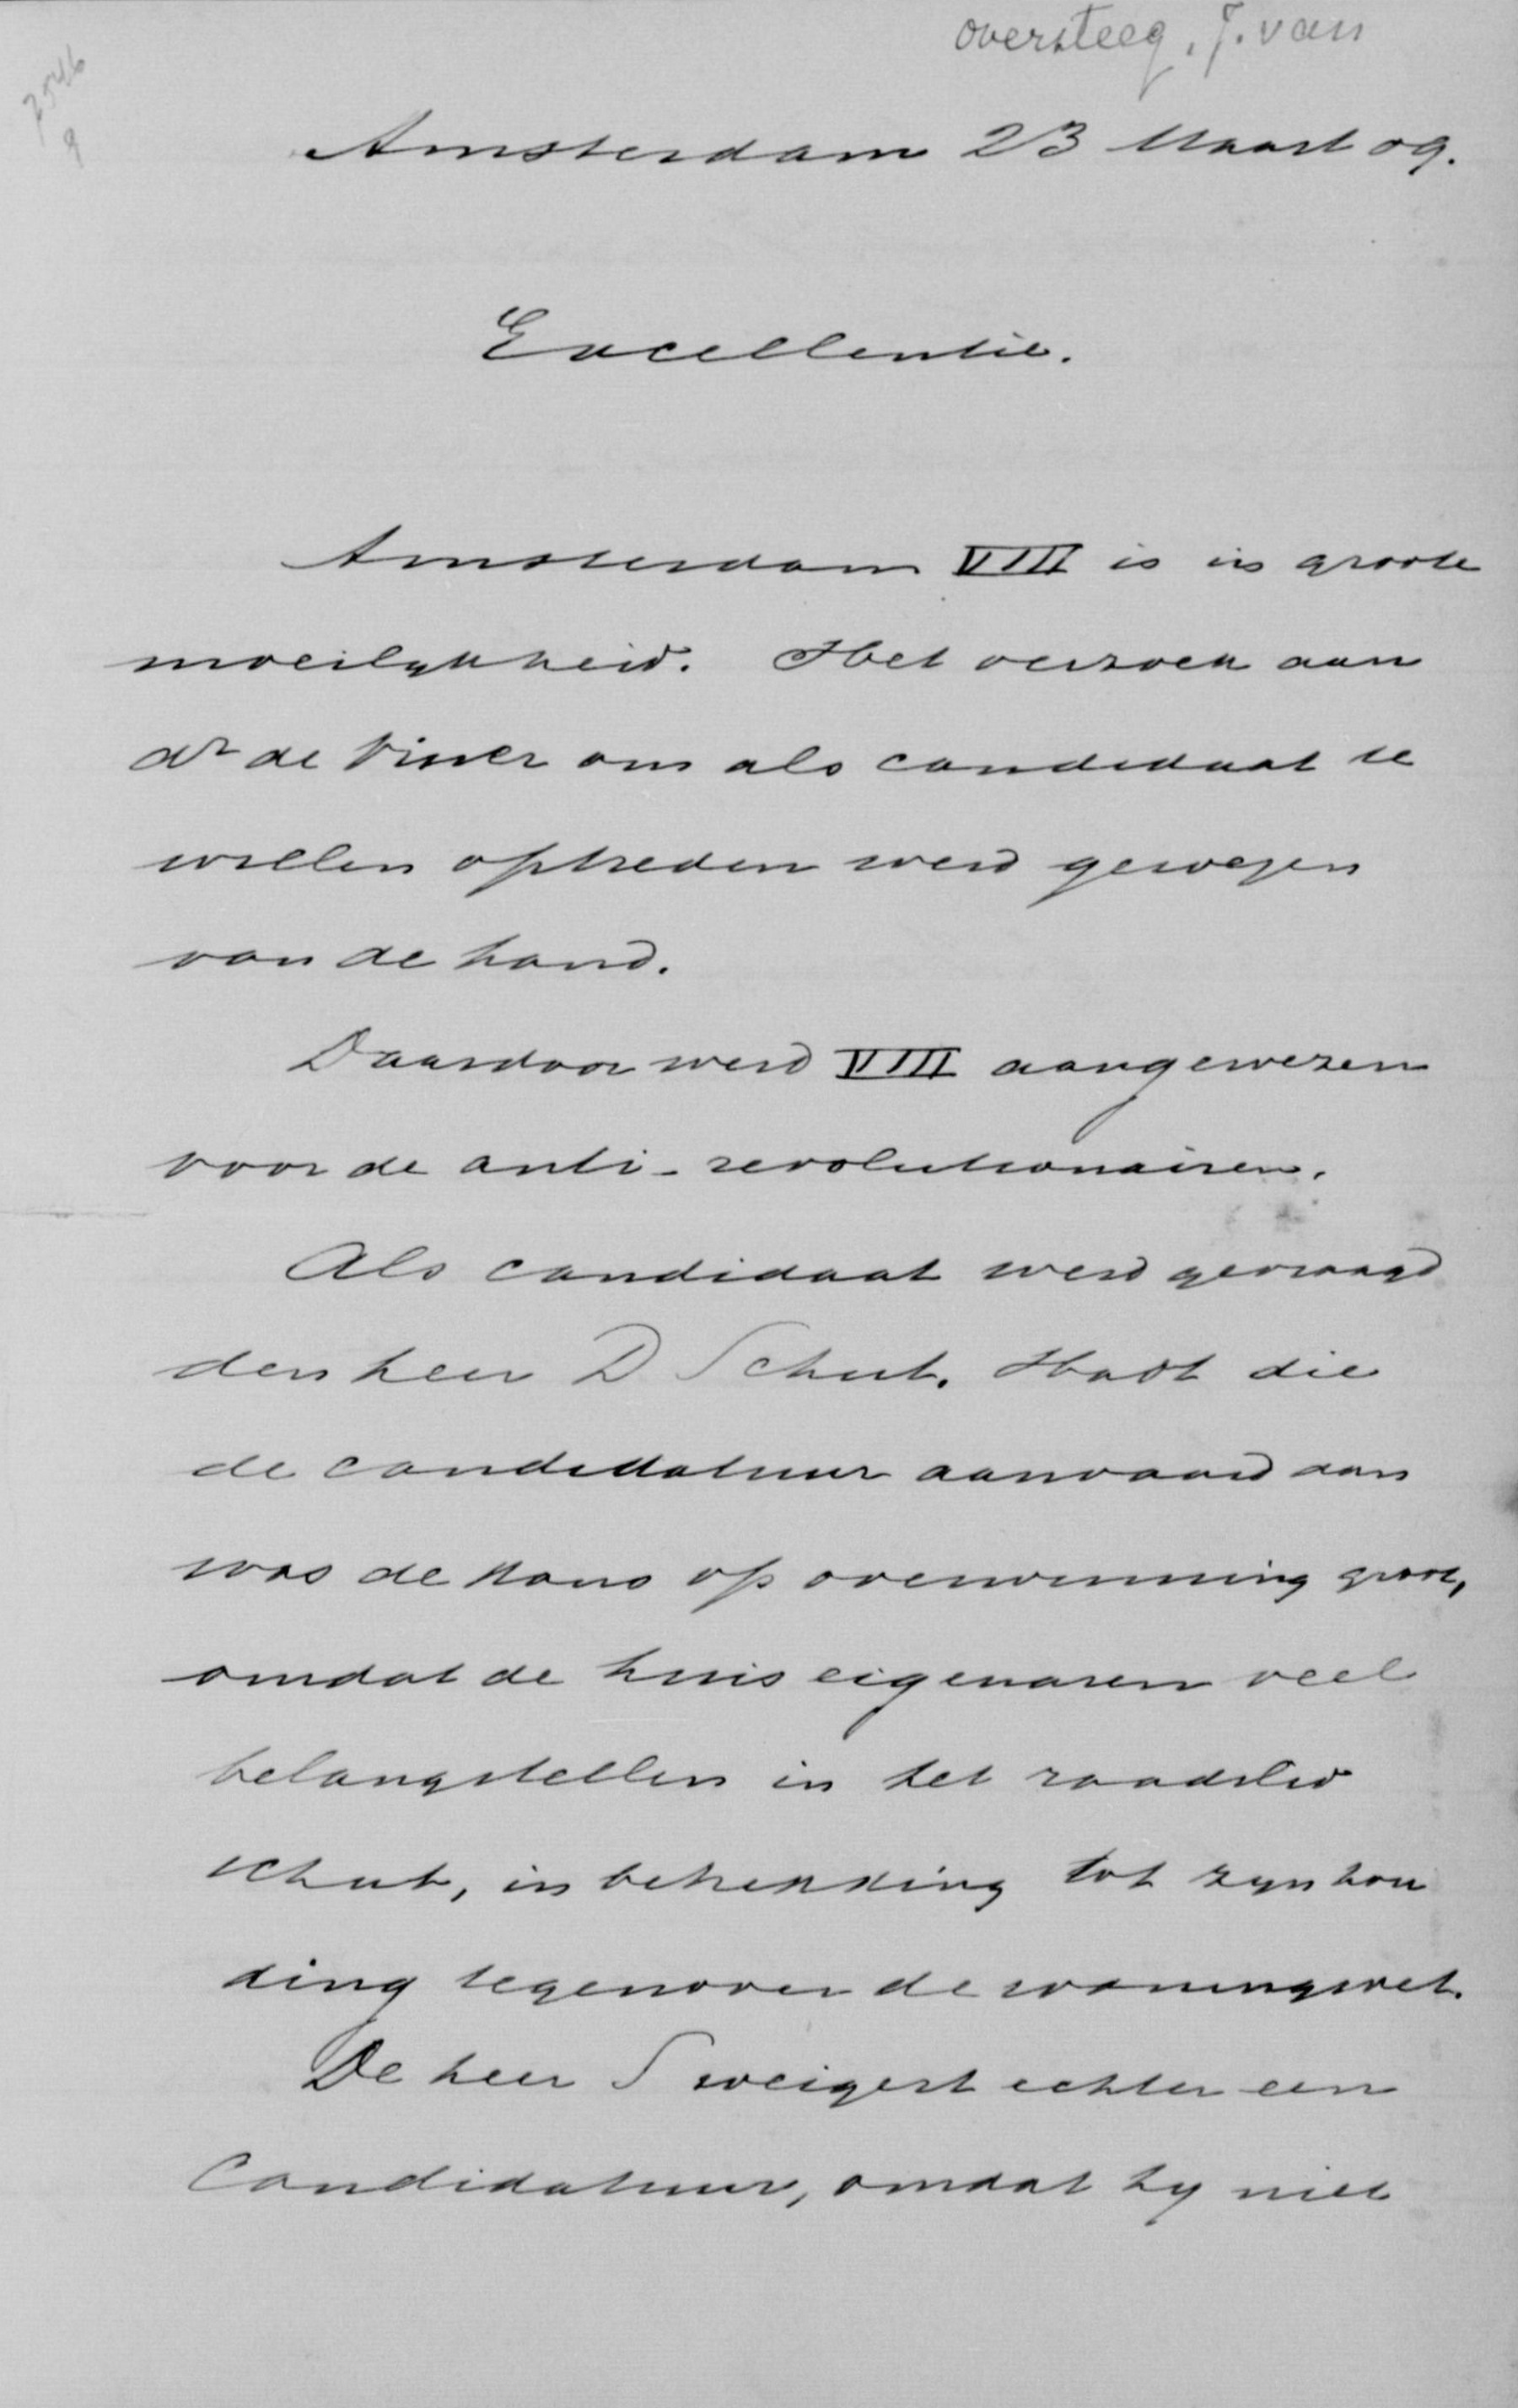 oversteeg, J. van
7546
9
Amsterdam 23 Maart 09.
Excellentie.
Amsterdam VIII is in groote
moeilykheid. Het verzoek aan
dr de Visser om als candidaat te
willen optreden werd gewezen
van de hand.
Daardoor werd VIII aangewezen
voor de anti-revolutionairen.
Als candidaat werd gevraagd
den heer D Schut. Hadt die
de candidatuur aanvaard dan
was de kans op overwinning groot,
omdat de huiseigenaren veel
belangstellen in het raadslid
schut, in betrekking tot zyn hou
ding tegenover de woningwet.
De heer S weigert echter een
Candidatuur, omdat hy niet